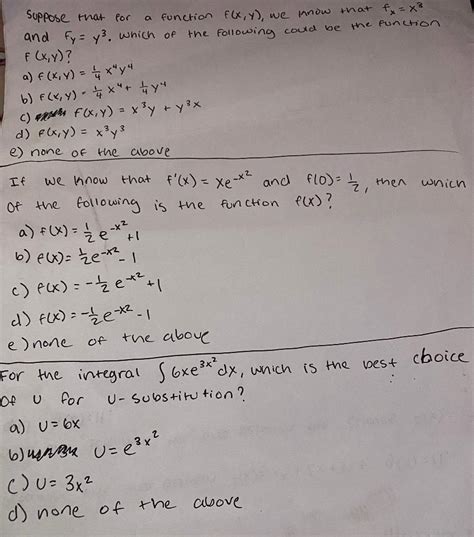 Suppose that for a function f(x,y), we know that fₓ = x³
and fy = y³. which of the following could be the function
f(x,y)?
a) f(x,y) = 1/4 x⁴y⁴
b) f(x,y) = 1/4 x⁴ + 1/4 y⁴
c) f(x,y) = x³y + y³x
d) f(x,y) = x³y³
e) none of the above
If we know that f'(x) = xe^-x² and f(0) = 1/2, then which
of the following is the function f(x)?
a) f(x) = 1/2 e^-x² +1
b) f(x) = 1/2 e^-x² - 1
c) f(x) = -1/2 e^-x² + 1
d) f(x) = -1/2 e^-x² - 1
e) none of the above
For the integral ∫6xe^3x² dx, which is the best choice
of u for u-substitution?
a) u = 6x
b) u = e^3x²
c) u = 3x²
d) none of the above